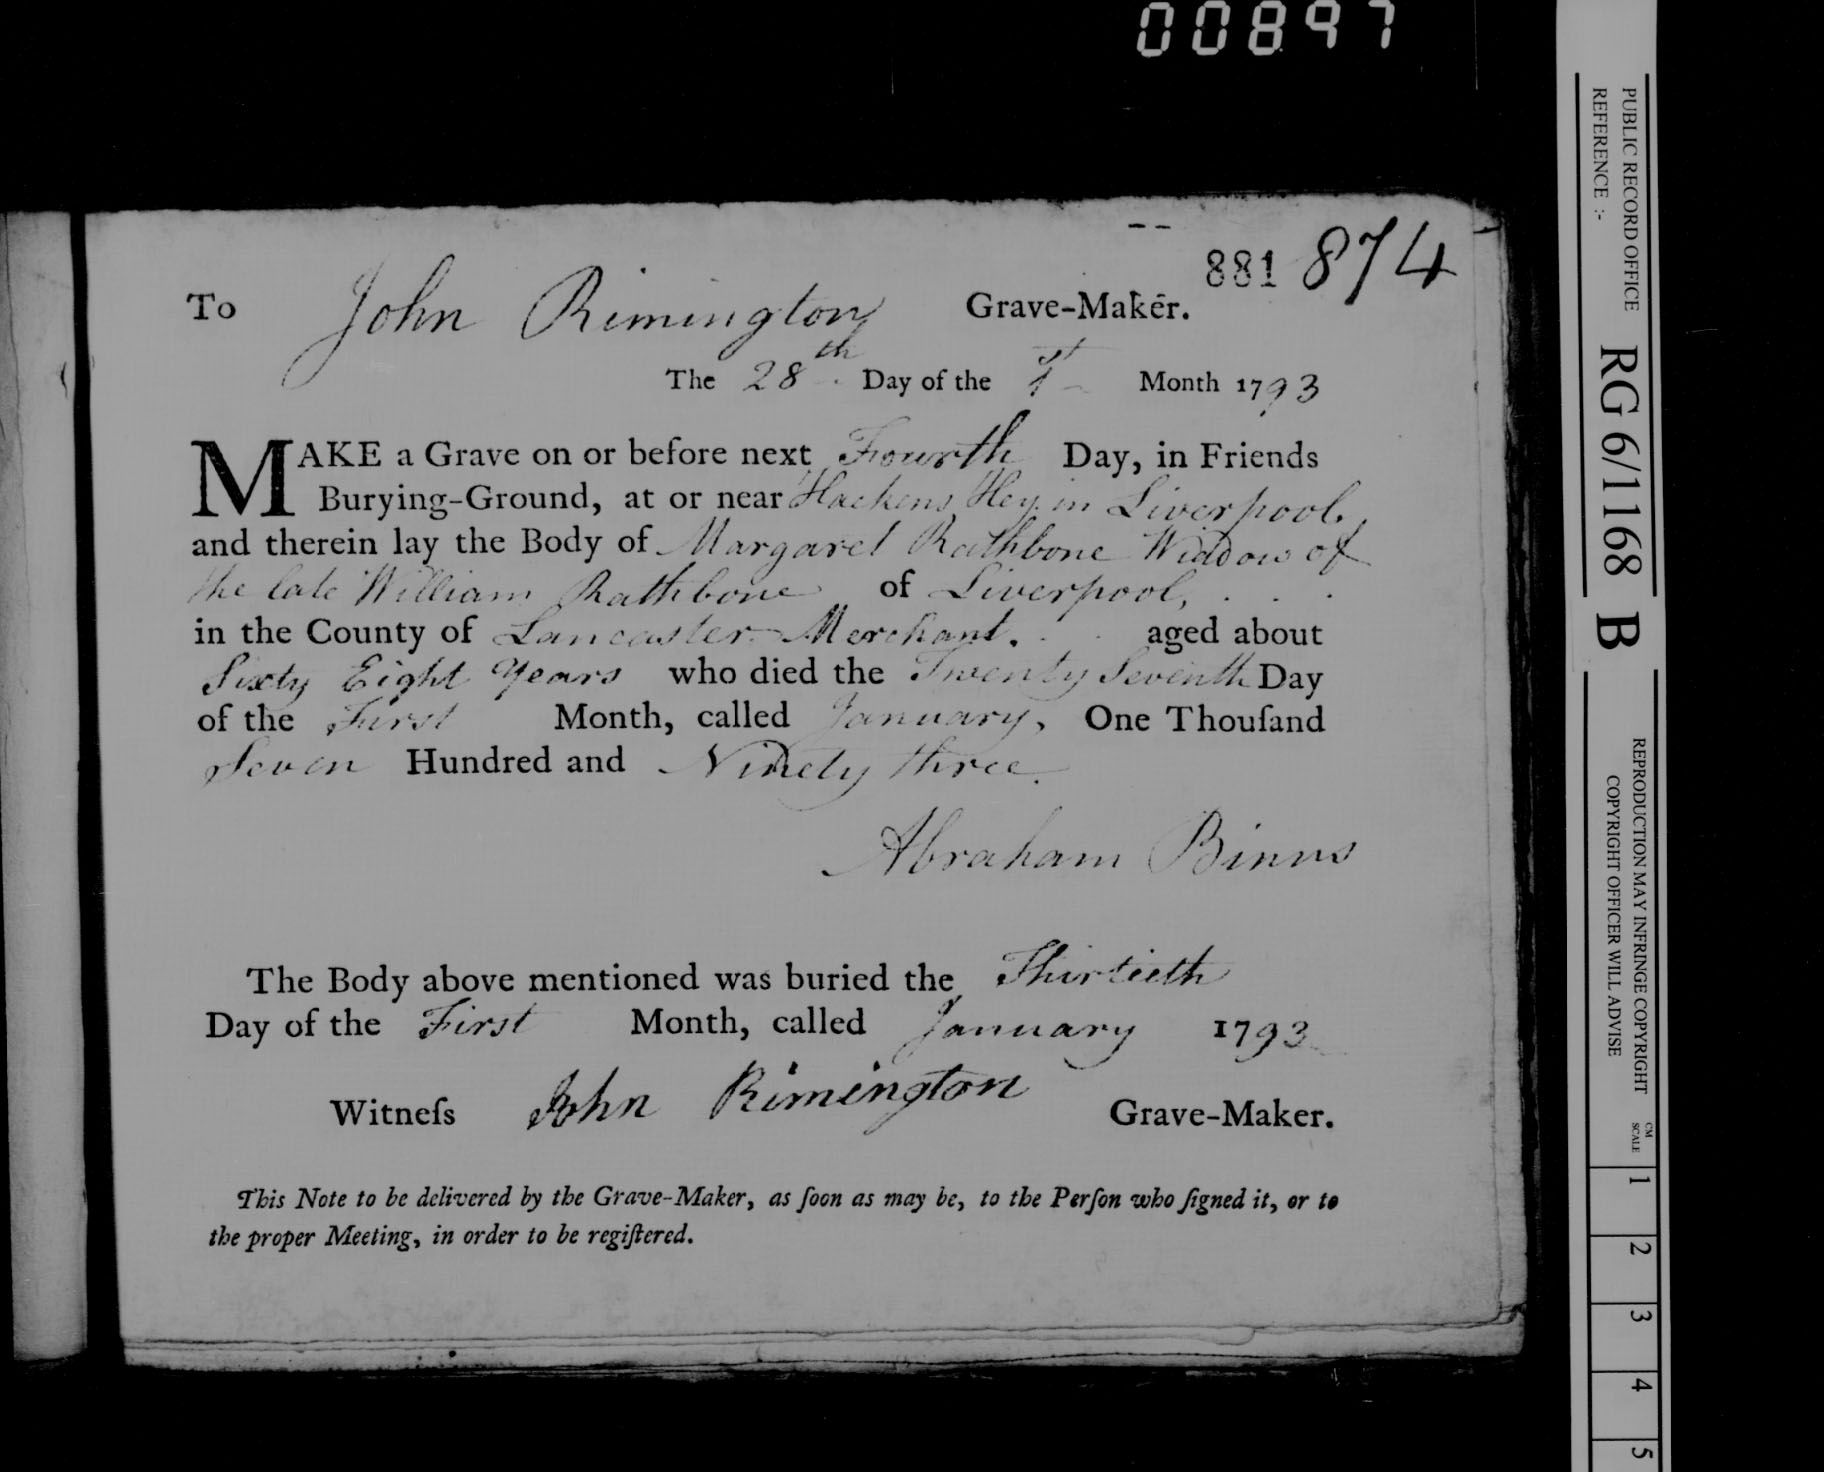 00897
881 874
To John Rimington Grave-Maker.
The 28th Day of the 1st Month 1793
MAKE a Grave on or before next Fourth Day, in Friends
Burying-Ground, at or near Hackens Hey in Liverpool,
and therein lay the Body of Margaret Rathbone Widdow of
the late William Rathbone of Liverpool,
in the County of Lancaster Merchant. aged about
Sixty Eight Years who died the Twenty Seventh Day
of the First Month, called January, One Thouſand
Seven Hundred and Ninety three.
Abraham Binns
The Body above mentioned was buried the Thirtieth
Day of the First Month, called January 1793
Witneſs John Rimington Grave-Maker.
This Note to be delivered by the Grave-Maker, as ſoon as may be, to the Perſon who ſigned it, or to
the proper Meeting, in order to be regiſtered.
PUBLIC RECORD OFFICE
REFERENCE :-
RG 6/1168 B
REPRODUCTION MAY INFRINGE COPYRIGHT
COPYRIGHT OFFICER WILL ADVISE
CM
SCALE
1
2
3
4
5